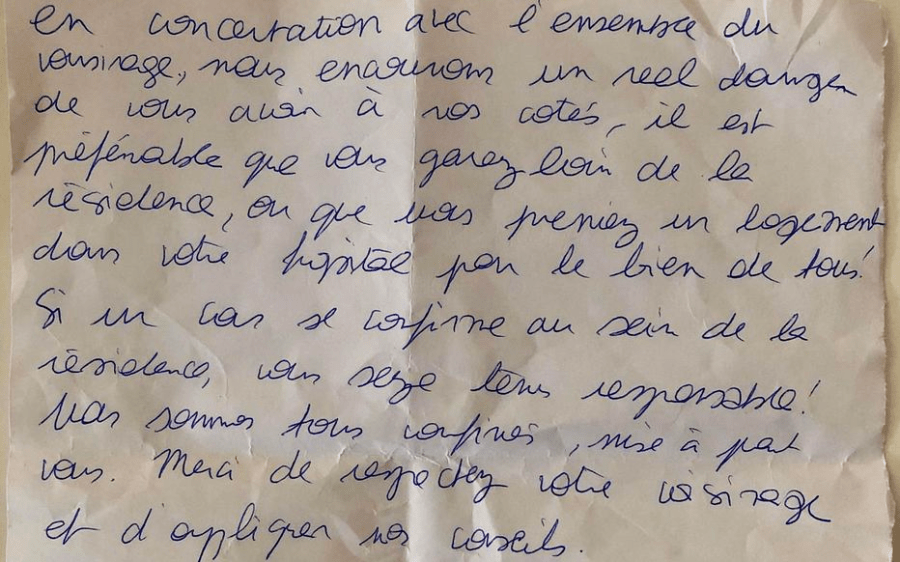 en concertation avec l'ensemble du
voisinage, nous encourons un reel danger
de vous avoir à nos cotés, il est
préférable que vous garez loin de la
résidence, ou que vous preniez un logement
dans votre hôpital pour le bien de tous!
Si un cas se confirme au sein de la
résidence, vous serez tenu responsable!
Nous sommes tous confinés, mise à part
vous. Merci de respectez votre voisinage
et d'appliquer nos conseils.